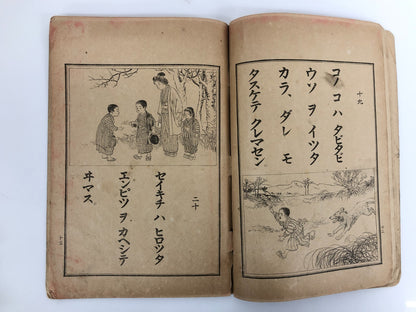 十九
コノ コハ タビタビ
ウソ ヲ イツタ
カラ、ダレ モ
タスケテ クレマセン
二十
セイキチ ハ ヒロツタ
エンピツ ヲ カヘシテ
ヰマス